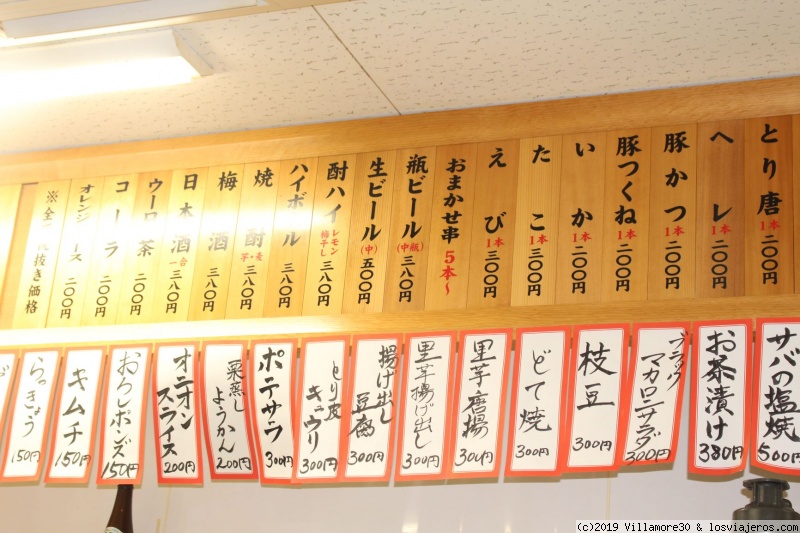 とり唐 1本 二〇〇円
ヘレ 1本 二〇〇円
豚かつ 1本 二〇〇円
豚つくね 1本 二〇〇円
いか 1本 二〇〇円
たこ 1本 三〇〇円
えび 1本 三〇〇円
おまかせ串 5本〜
瓶ビール(中瓶) 三八〇円
生ビール(中) 五〇〇円
酎ハイ レモン 梅干し 三八〇円
ハイボール 三八〇円
焼酎 芋・麦 三八〇円
梅酒 三八〇円
日本酒 一合 三八〇円
ウーロン茶 二〇〇円
コーラ 二〇〇円
オレンジ ース 二〇〇円
※全 抜き価格
サバの塩焼 500円
お茶漬け 380円
ブラック マカロニサラダ 300円
枝豆 300円
どて焼 300円
里芋唐揚 300円
里芋揚げ出し 300円
揚げ出し豆腐 300円
とり皮キュウリ 300円
ポテサラ 300円
栗蒸しようかん 200円
オニオンスライス 200円
おろしポンズ 150円
キムチ 150円
らっきょう 150円
(c)2019 Villamore30 & losviajeros.com